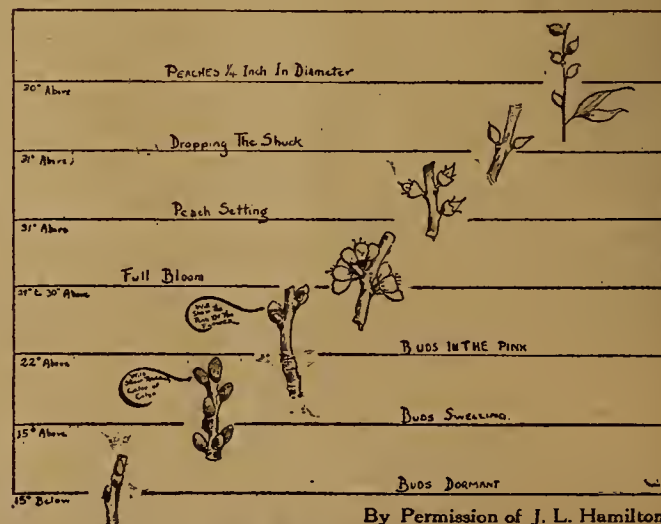 PEACHES ¼ INCH IN DIAMETER
30° Above
Dropping The Shuck
31° Above
Peach Setting
31° Above
Full Bloom
29° & 30° Above
Will Show The Pink Of The
BUDS IN THE PINK
22° Above
Will Show
Color of Calyx
BUDS SWELLING.
15° Above
BUDS DORMANT
15° Below
By Permission of J. L. Hamilton